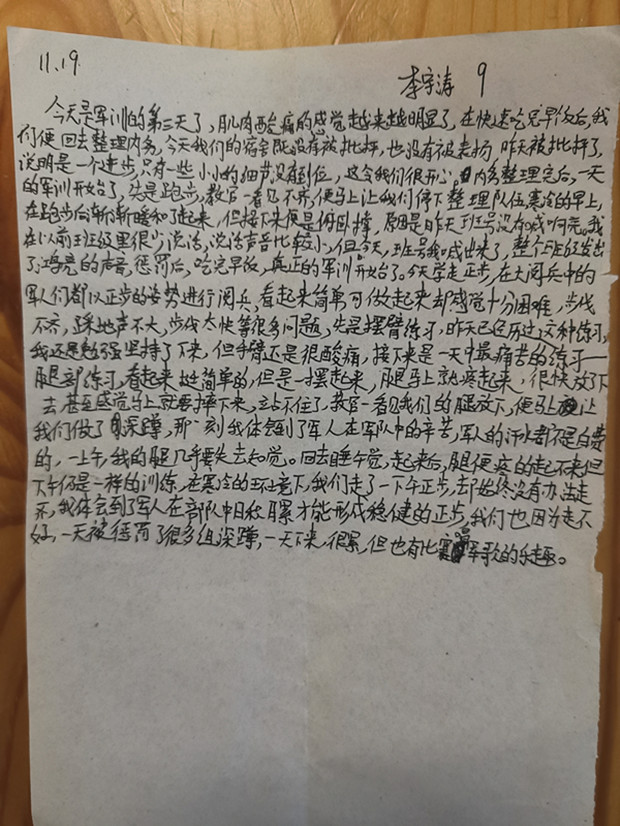 11.19
李宇涛 9
今天是军训的第三天了,肌肉酸痛的感觉越来越明显了,在快速吃完早饭后,我
们便回去整理内务,今天我们的宿舍既没有被批评,也没有被表扬 昨天被批评了,
说明是一个进步,只有一些小小的细节没有到位,这令我们很开心,内务整理完后,一天
的军训开始了,先是跑步,教官一看见不齐,便马上让我们停下整理队伍,寒冷的早上,
在跑步后渐渐暖和了起来,但接下来便是俯卧撑,原因是昨天班号没有喊响亮。我
在以前班级里很少说话,说话声音比较小,但今天,班号我喊出来了,整个班级发出
了洪亮的声音,惩罚后,吃完早饭,真正的军训开始了。今天学走正步,在大阅兵中的
军人们都以正步的姿势进行阅兵,看起来简单可做起来却感觉十分困难,步伐
不齐,踩地声不大,步伐太快等很多问题,先是摆臂练习,昨天已经历过这种练习,
我还是勉强坚持了下来,但手臂还是很酸痛,接下来是一天中最痛苦的练习—
腿部练习,看起来挺简单的,但是一摆起来,腿马上就疼起来,很快放了下
去 甚至感觉马上就要摔下来,站不住了,教官一看见我们的腿放下,便马上让
我们做了深蹲,那一刻我体会到了军人在军队中的辛苦,军人的汗水都不是白费
的,一上午,我的腿几乎要失去知觉。回去睡午觉,起来后,腿便疼的起不来,但
下午仍是一样的训练,在寒冷的环境下,我们走了一下午正步,却始终没有办法走
齐,我体会到了军人在部队中日积月累才能形成稳健的正步,我们也因为走不
好,一天被惩罚了很多组深蹲,一天下来,很累,但也有比赛军歌的乐趣。